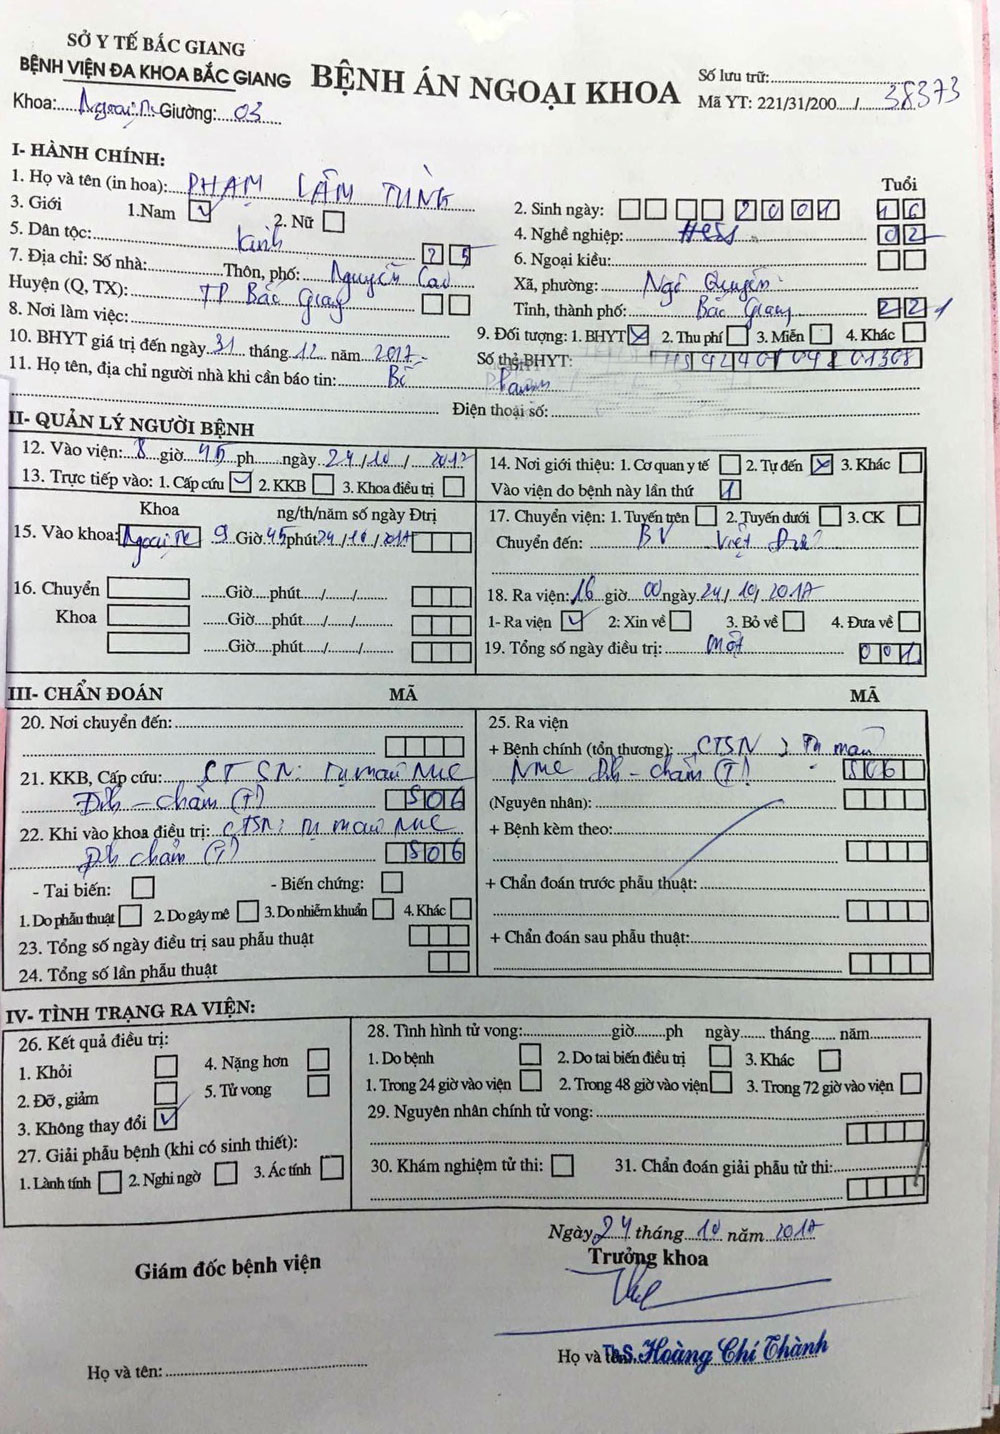 SỞ Y TẾ BẮC GIANG
BỆNH VIỆN ĐA KHOA BẮC GIANG
BỆNH ÁN NGOẠI KHOA
Số lưu trữ:
Mã YT: 221/31/200..../ 38373
Khoa: Giường: 03
I- HÀNH CHÍNH:
1. Họ và tên (in hoa): PHẠM LÂM TÙNG
2. Sinh ngày: 2001 Tuổi 16
3. Giới 1.Nam ✓ 2. Nữ
4. Nghề nghiệp: 02
5. Dân tộc: Kinh 25
6. Ngoại kiều:
7. Địa chỉ: Số nhà: Thôn, phố: Nguyễn Cao
Xã, phường: Ngô Quyền
Huyện (Q, TX): TP Bắc Giang
Tỉnh, thành phố: Bắc Giang 221
8. Nơi làm việc:
9. Đối tượng: 1. BHYT X 2. Thu phí 3. Miễn 4. Khác
10. BHYT giá trị đến ngày 31 tháng 12 năm 2017
Số thẻ BHYT:
11. Họ tên, địa chỉ người nhà khi cần báo tin: Bố Phạm
Điện thoại số:
II- QUẢN LÝ NGƯỜI BỆNH
12. Vào viện: 8 giờ 45 ph ngày 24/10/2017
13. Trực tiếp vào: 1. Cấp cứu ✓ 2. KKB 3. Khoa điều trị
14. Nơi giới thiệu: 1. Cơ quan y tế 2. Tự đến X 3. Khác
Vào viện do bệnh này lần thứ 1
Khoa ng/th/năm số ngày Đtrị
15. Vào khoa: Ngoại TK 9 Giờ 45 phút 24/10/2017
16. Chuyển Khoa
Giờ....phút..../..../....
Giờ....phút..../..../....
Giờ....phút..../..../....
17. Chuyển viện: 1. Tuyến trên 2. Tuyến dưới 3. CK
Chuyển đến: BV Việt Đức
18. Ra viện: 16 giờ 00 ngày 24/10/2017
1- Ra viện ✓ 2: Xin về 3. Bỏ về 4. Đưa về
19. Tổng số ngày điều trị: một 001
III- CHẨN ĐOÁN MÃ
MÃ
20. Nơi chuyển đến:
21. KKB, Cấp cứu: CTSN: Tụ máu NMC
Đỉnh - chẩm (T) S06
22. Khi vào khoa điều trị: CTSN: Tụ máu NMC
Đỉnh chẩm (T) S06
- Tai biến: - Biến chứng:
1. Do phẫu thuật 2. Do gây mê 3. Do nhiễm khuẩn 4. Khác
23. Tổng số ngày điều trị sau phẫu thuật
24. Tổng số lần phẫu thuật
25. Ra viện
+ Bệnh chính (tổn thương): CTSN: Tụ máu
NMC Đỉnh - chẩm (T) S06
(Nguyên nhân):
+ Bệnh kèm theo:
+ Chẩn đoán trước phẫu thuật:
+ Chẩn đoán sau phẫu thuật:
IV- TÌNH TRẠNG RA VIỆN:
26. Kết quả điều trị:
1. Khỏi 4. Nặng hơn
2. Đỡ, giảm 5. Tử vong
3. Không thay đổi ✓
27. Giải phẫu bệnh (khi có sinh thiết):
1. Lành tính 2. Nghi ngờ 3. Ác tính
28. Tình hình tử vong: giờ ph ngày tháng năm
1. Do bệnh 2. Do tai biến điều trị 3. Khác
1. Trong 24 giờ vào viện 2. Trong 48 giờ vào viện 3. Trong 72 giờ vào viện
29. Nguyên nhân chính tử vong:
30. Khám nghiệm tử thi: 31. Chẩn đoán giải phẫu tử thi:
Ngày 24 tháng 10 năm 2017
Giám đốc bệnh viện
Trưởng khoa
Họ và tên:
Họ và tên: ThS. Hoàng Chí Thành